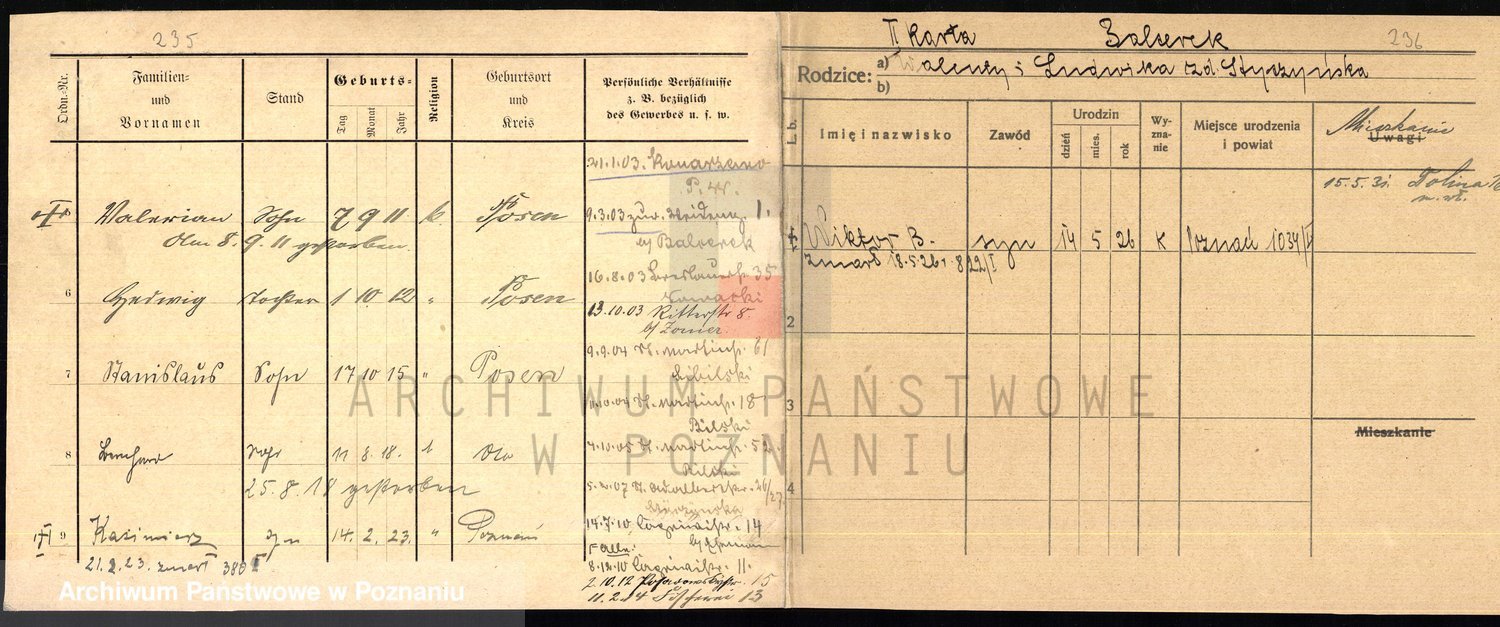 235
Ordn.-Nr.
Familien- und Vornamen
Stand
Geburts-
Tag
Monat
Jahr
Religion
Geburtsort und Kreis
Persönliche Verhältnisse
z. B. bezüglich
des Gewerbes u. s. w.
21.1.03. Konarzewo
P. W.
Valerian Sohn 7 9 11 k Posen
9.3.03 zur.
1.
Am 8. 9. 11 gestorben.
b/ Balcerek
16.8.03 Breslauerstr. 35
6 Hedwig Tochter 1 10 12 " Posen
Nowacki
13.10.03 Ritterstr 8.
b/
9.9.04 St. Martinstr. 61
7 Stanislaus Sohn 17 10 15 " Posen
Sibilski
St. Martinstr. 18
Bilski
8 Bernhard Sohn 11 8. 18.
St. Martinstr. 52
25.8.18 gestorben
5.2.07 St. Adalbertstr. 26/27
9 Kazimierz syn 14. 2. 23. " Poznań
14.7.10
14
21.2.23. zmarł 380 I
8.12.10
11.
2.10.12
15
11.2.14
13
II Karta Balcerek
236
Rodzice: a) Walenty i Ludwika z d. Styczyńska
b)
L. b.
Imię i nazwisko
Zawód
Urodzin
dzień
mies.
rok
Wy-
zna-
nie
Miejsce urodzenia
i powiat
Mieszkanie
Uwagi
15.5.31 Dolina
m. wł.
Wiktor B. syn 14 5 26 K Poznań 1034/I
zmarł 18.5.26 r. 822/I
2
3
Mieszkanie
4
ARCHIWUM PAŃSTWOWE
W POZNANIU
Archiwum Państwowe w Poznaniu